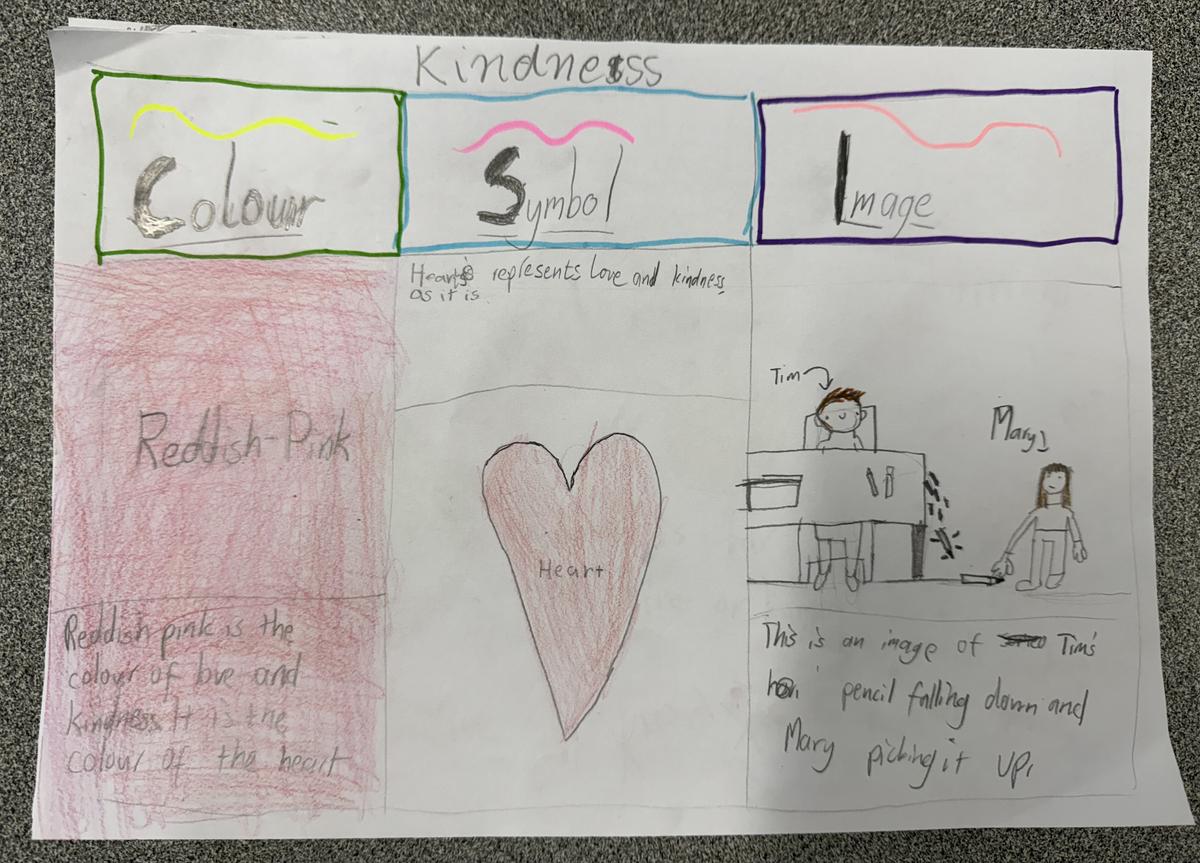 Kindness
Colour
Symbol
Image
Reddish-Pink
Reddish pink is the
colour of love and
kindness. It is the
colour of the heart
Hearts represents Love and kindness
as it is.
Heart
Tim
Mary
This is an image of Tim's
pencil falling down and
Mary picking it up.